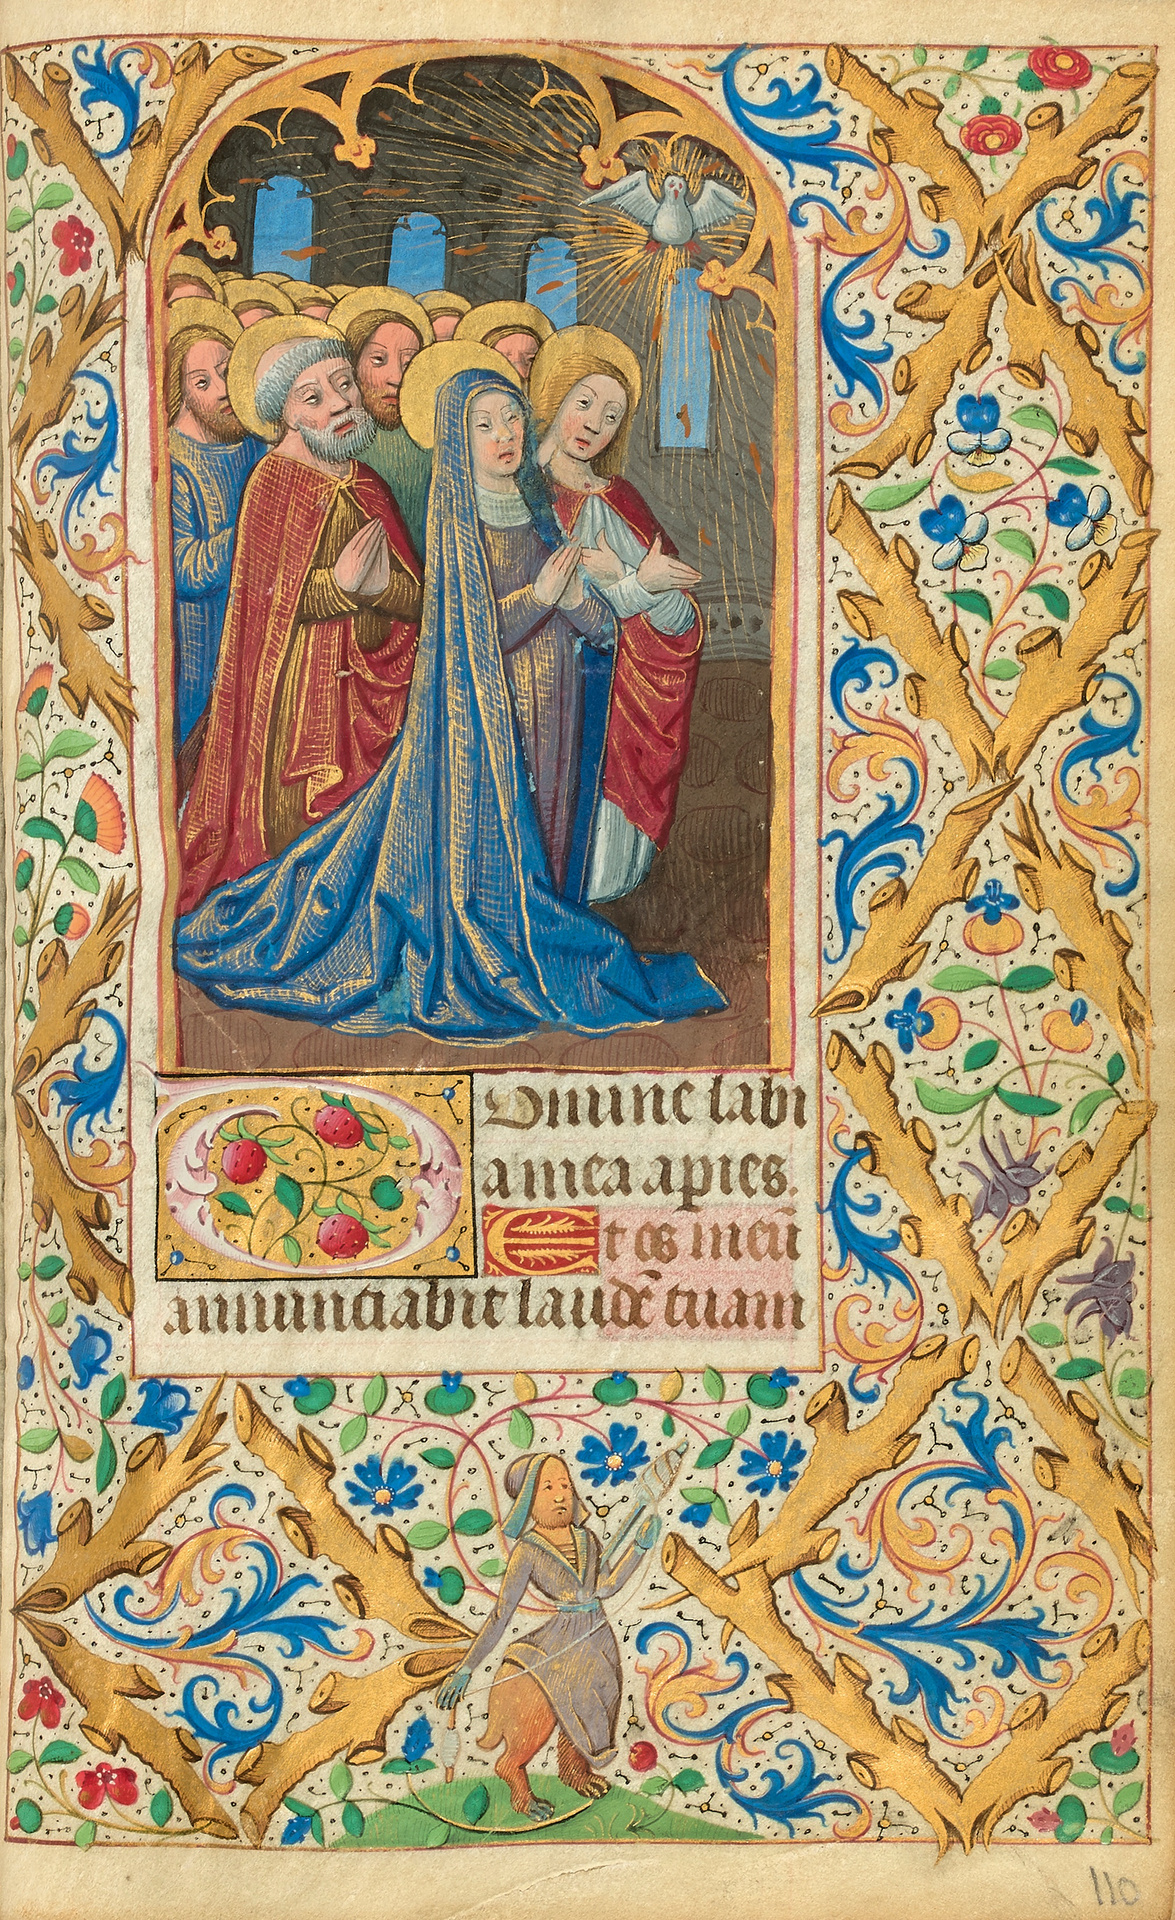 Domine labi
a mea aꝑies.
Et os meū
annunciabit laudē tuam
110